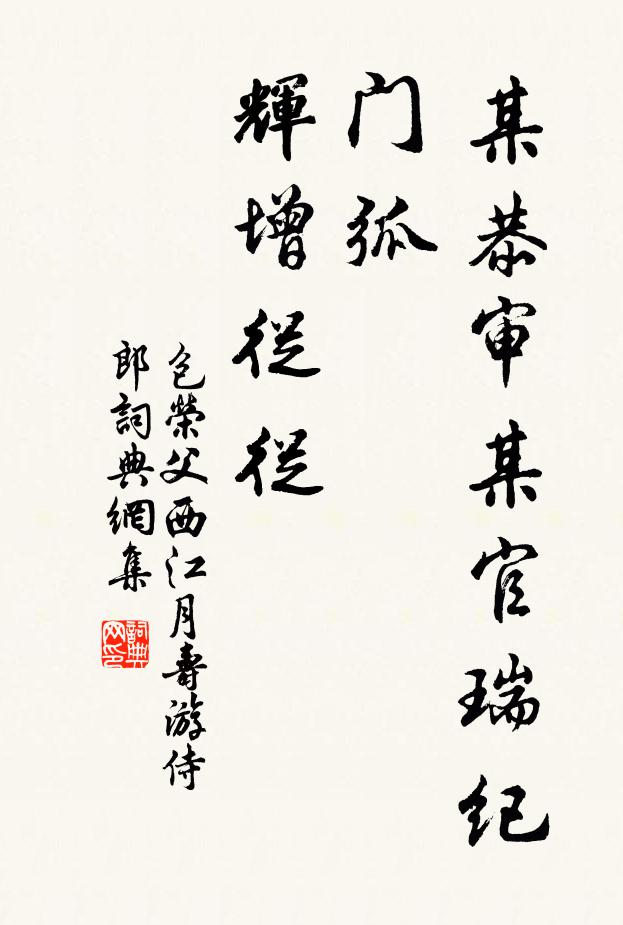 某恭审某官瑞纪
门弧
輝增從從
包榮父西江月壽游侍
郎詞典網集
詞典
网印